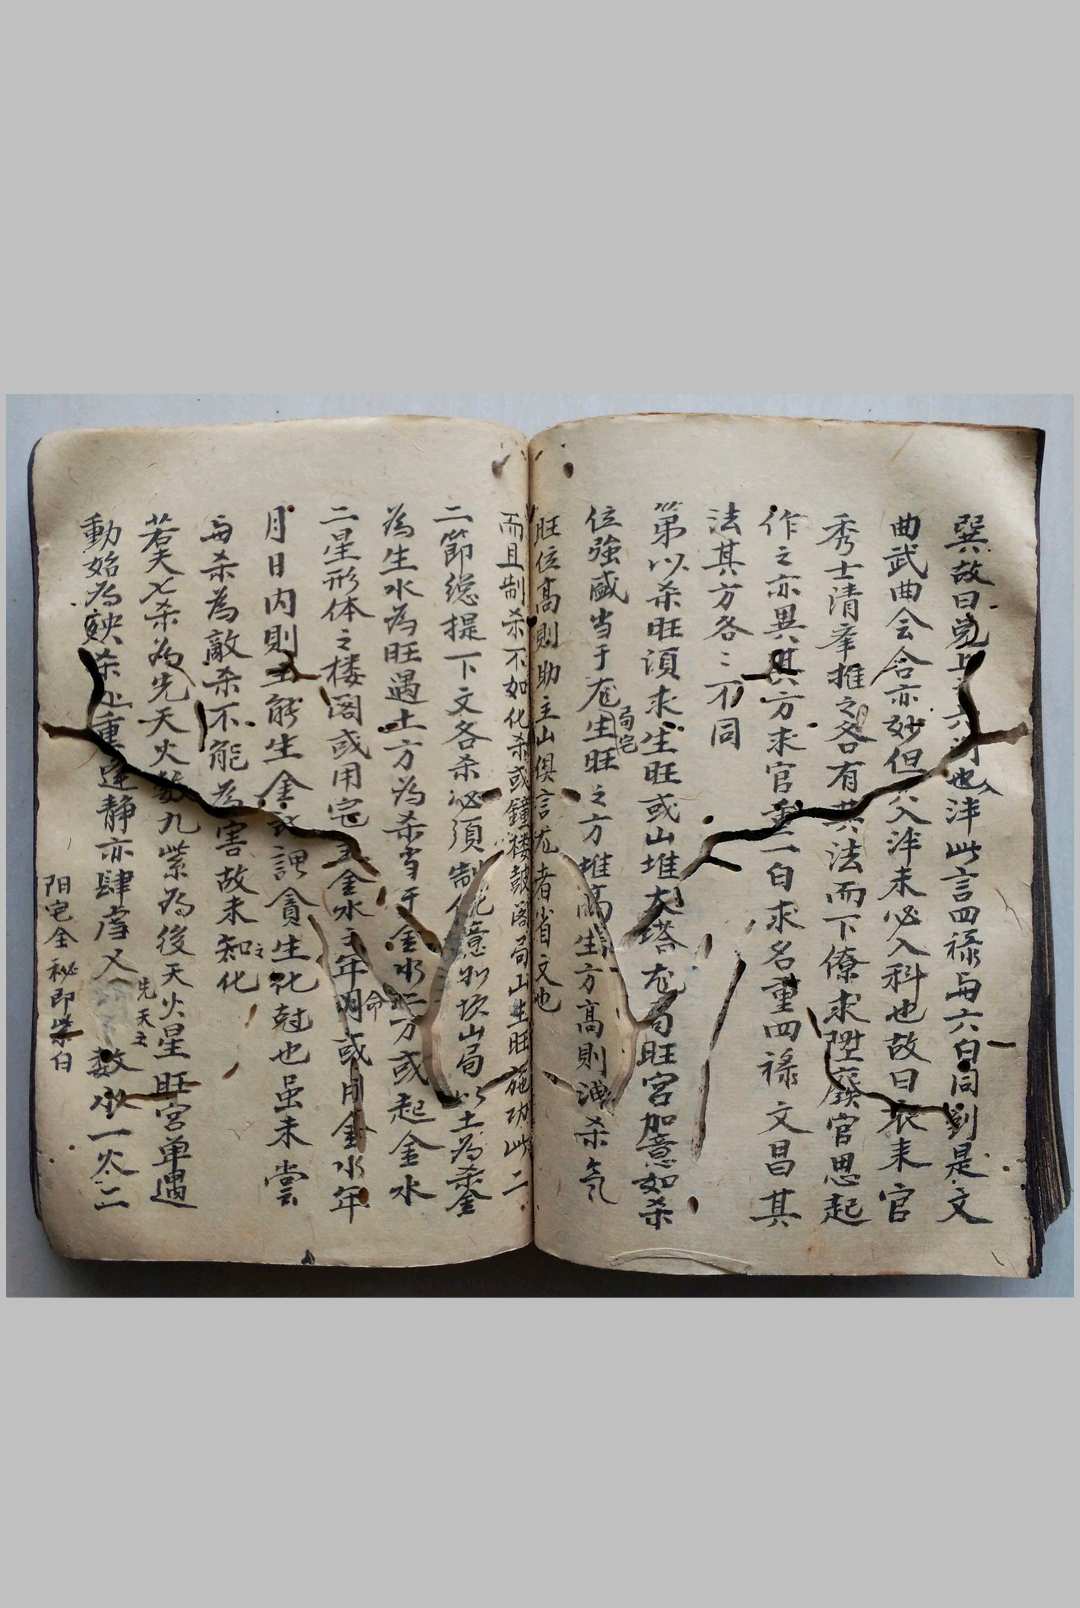 巽故曰 六 也泮此言四禄与六白同到是文
曲武曲会合亦妙但 入泮未必入科也故曰 来官
秀士清 推之各有其法而下僚求陞 官思起
作之亦異其方求官重一白求名重四禄文昌其
法其方各〻不同
第以杀旺須求生旺或山堆大塔尨局旺宮加意如杀
位強盛当于尨局宅生旺之方堆高 生方高則洩杀氣
旺位高則助主山俱言尨者省文也
而且制杀不如化杀或鐘楼鼓阁局山生旺施功此二
二節総提下文各杀必須制化 意如坎山局以土為杀金
為生水為旺遇土方為杀当于金水二方或起金水
二星形体之楼阁或用宅主金水之年命月或用金水年
月日内則土能生金 謂貪生化尅也虽未嘗
与杀為敵杀不能為害故未知化
若夫七杀為先天火数九紫為後天火星旺宮单遇
動始為殃杀 重逢静亦肆虐又先天 数水一火二
阳宅全秘即紫白